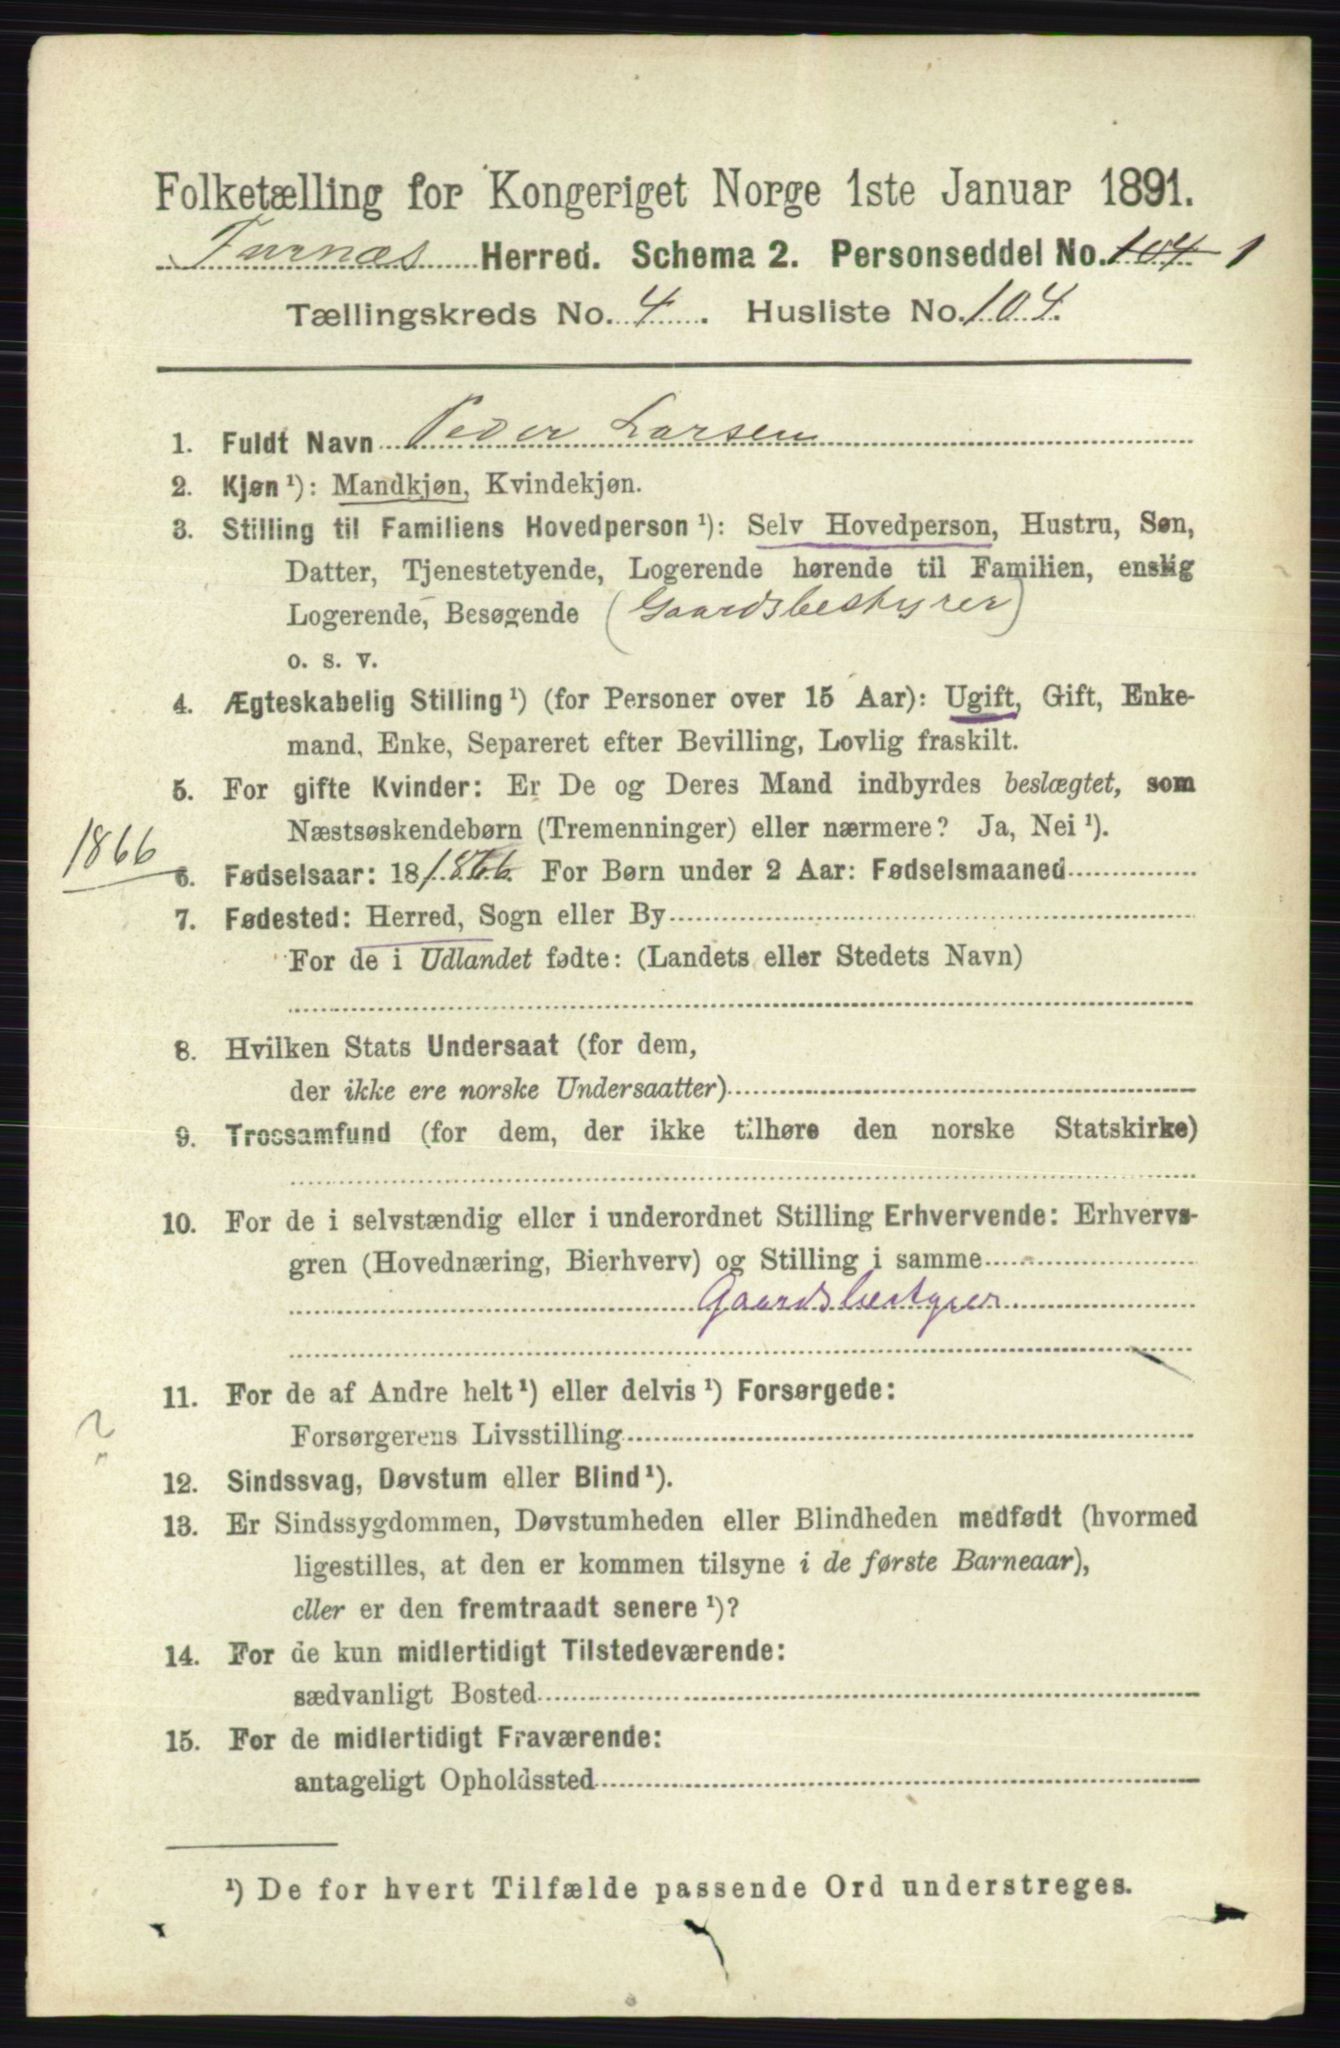 Folketælling for Kongeriget Norge 1ste Januar 1891.
Furnæs Herred. Schema 2. Personseddel No. 104 1
Tællingskreds No. 4. Husliste No. 104.
1. Fuldt Navn Peder Larsen
2. Kjøn ¹): Mandkjøn, Kvindekjøn.
3. Stilling til Familiens Hovedperson ¹): Selv Hovedperson, Hustru, Søn,
Datter, Tjenestetyende, Logerende hørende til Familien, enslig
Logerende, Besøgende (Gaardsbestyrer)
o. s. v.
4. Ægteskabelig Stilling ¹) (for Personer over 15 Aar): Ugift, Gift, Enke-
mand, Enke, Separeret efter Bevilling, Lovlig fraskilt.
5. For gifte Kvinder: Er De og Deres Mand indbyrdes beslægtet, som
Næstsøskendebørn (Tremenninger) eller nærmere? Ja, Nei ¹).
1866
6. Fødselsaar: 18 1866. For Børn under 2 Aar: Fødselsmaaned
7. Fødested: Herred, Sogn eller By
For de i Udlandet fødte: (Landets eller Stedets Navn)
8. Hvilken Stats Undersaat (for dem,
der ikke ere norske Undersaatter)
9. Trossamfund (for dem, der ikke tilhøre den norske Statskirke)
10. For de i selvstændig eller i underordnet Stilling Erhvervende: Erhvervs-
gren (Hovednæring, Bierhverv) og Stilling i samme
Gaardsbestyrer
11. For de af Andre helt ¹) eller delvis ¹) Forsørgede:
?
Forsørgerens Livsstilling
12. Sindssvag, Døvstum eller Blind ¹).
13. Er Sindssygdommen, Døvstumheden eller Blindheden medfødt (hvormed
ligestilles, at den er kommen tilsyne i de første Barneaar),
eller er den fremtraadt senere ¹)?
14. For de kun midlertidigt Tilstedeværende:
sædvanligt Bosted
15. For de midlertidigt Fraværende:
antageligt Opholdssted
¹) De for hvert Tilfælde passende Ord understreges.